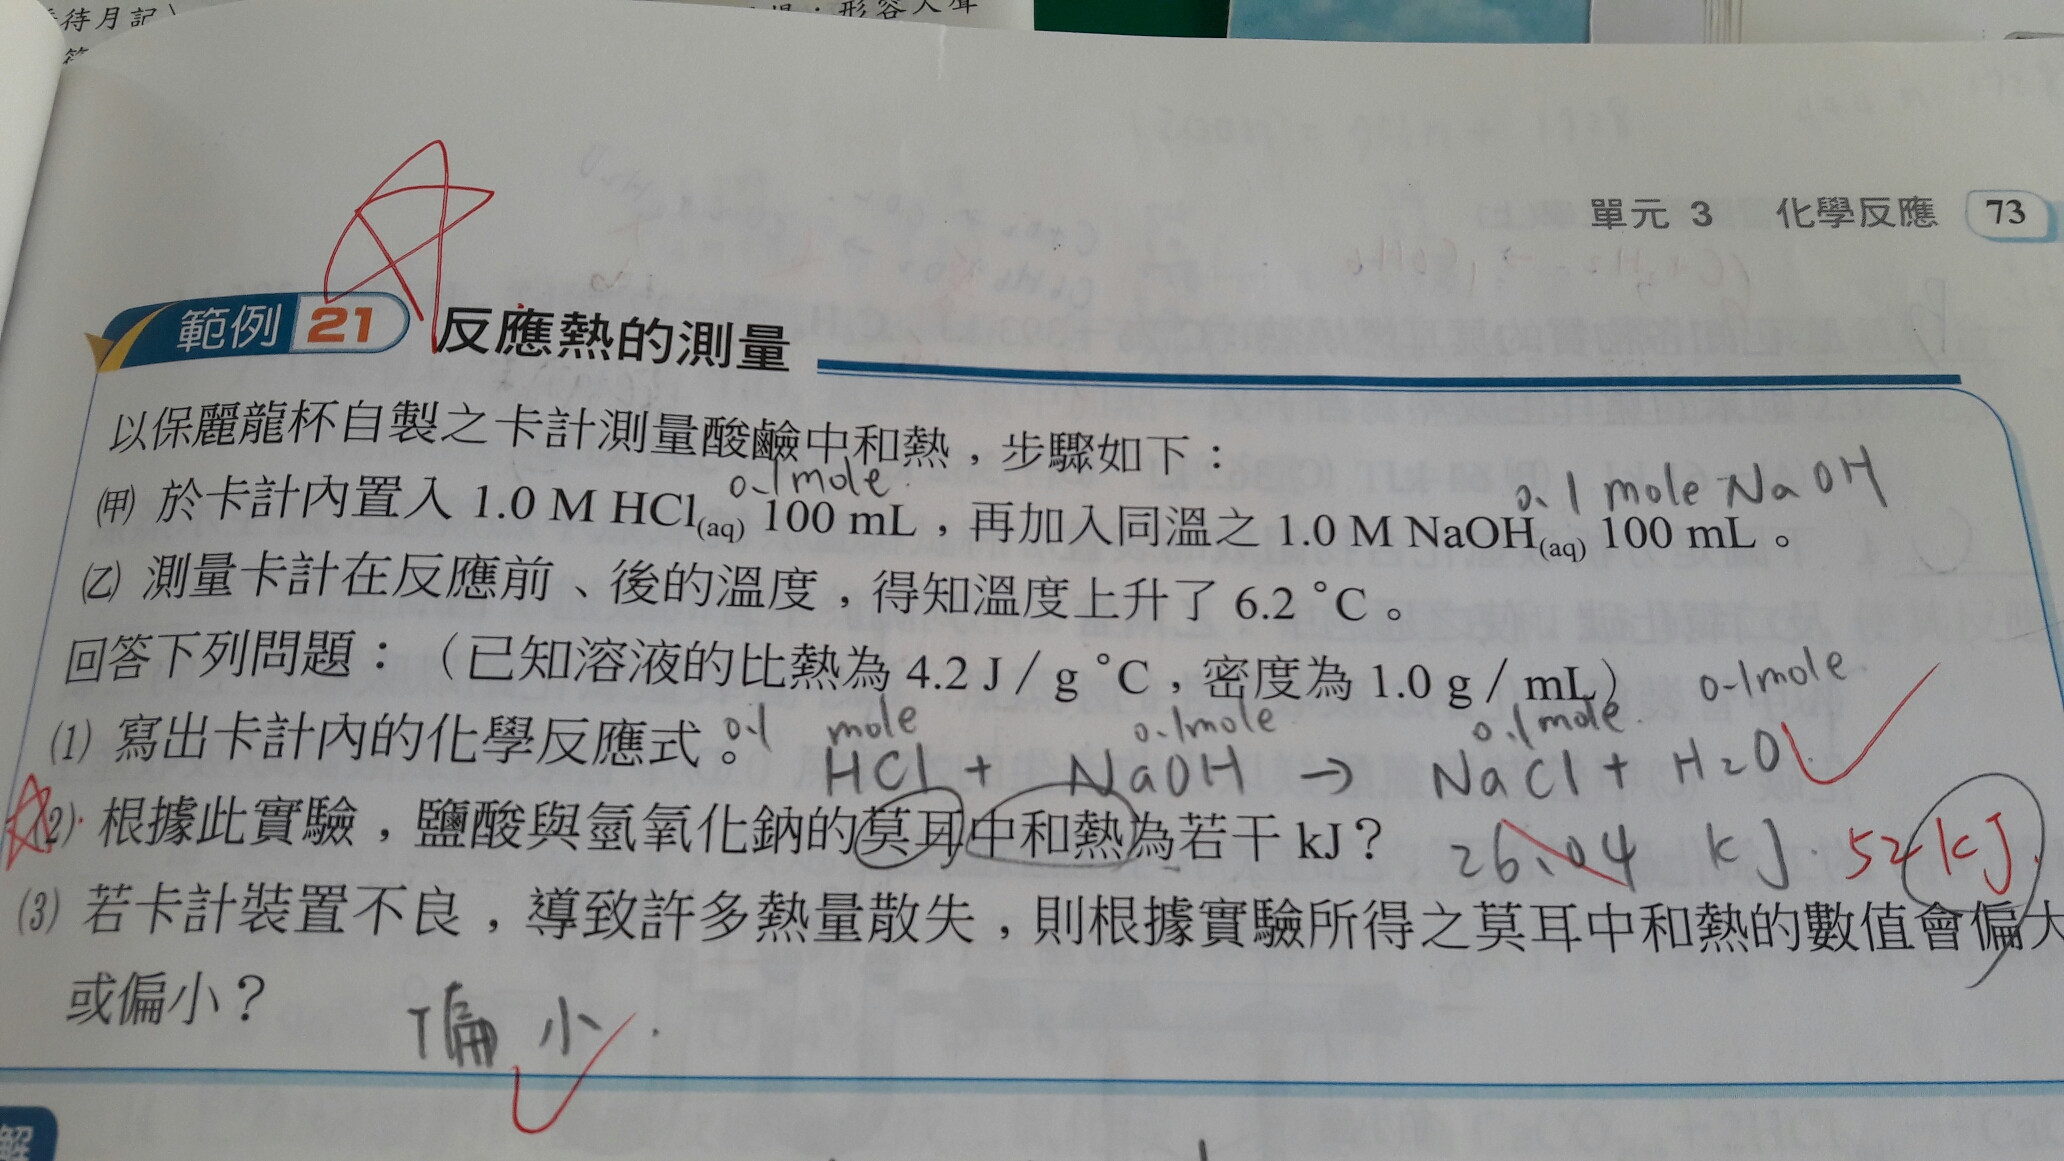 待月記
單元 3 化學反應 73
範例 21 反應熱的測量
以保麗龍杯自製之卡計測量酸鹼中和熱，步驟如下：
0.1mole. 0.1 mole NaOH
㈙ 於卡計內置入 1.0 M HCl(aq) 100 mL，再加入同溫之 1.0 M NaOH(aq) 100 mL。
㈚ 測量卡計在反應前、後的溫度，得知溫度上升了 6.2 °C。
回答下列問題：（已知溶液的比熱為 4.2 J／g °C，密度為 1.0 g／mL） 0.1mole
0.1 mole 0.1mole 0.1mole.
(1) 寫出卡計內的化學反應式。 HCl + NaOH → NaCl + H2O
(2) 根據此實驗，鹽酸與氫氧化鈉的莫耳中和熱為若干 kJ？ 26.04 kJ. 52kJ.
(3) 若卡計裝置不良，導致許多熱量散失，則根據實驗所得之莫耳中和熱的數值會偏大
或偏小？ 偏小.
解